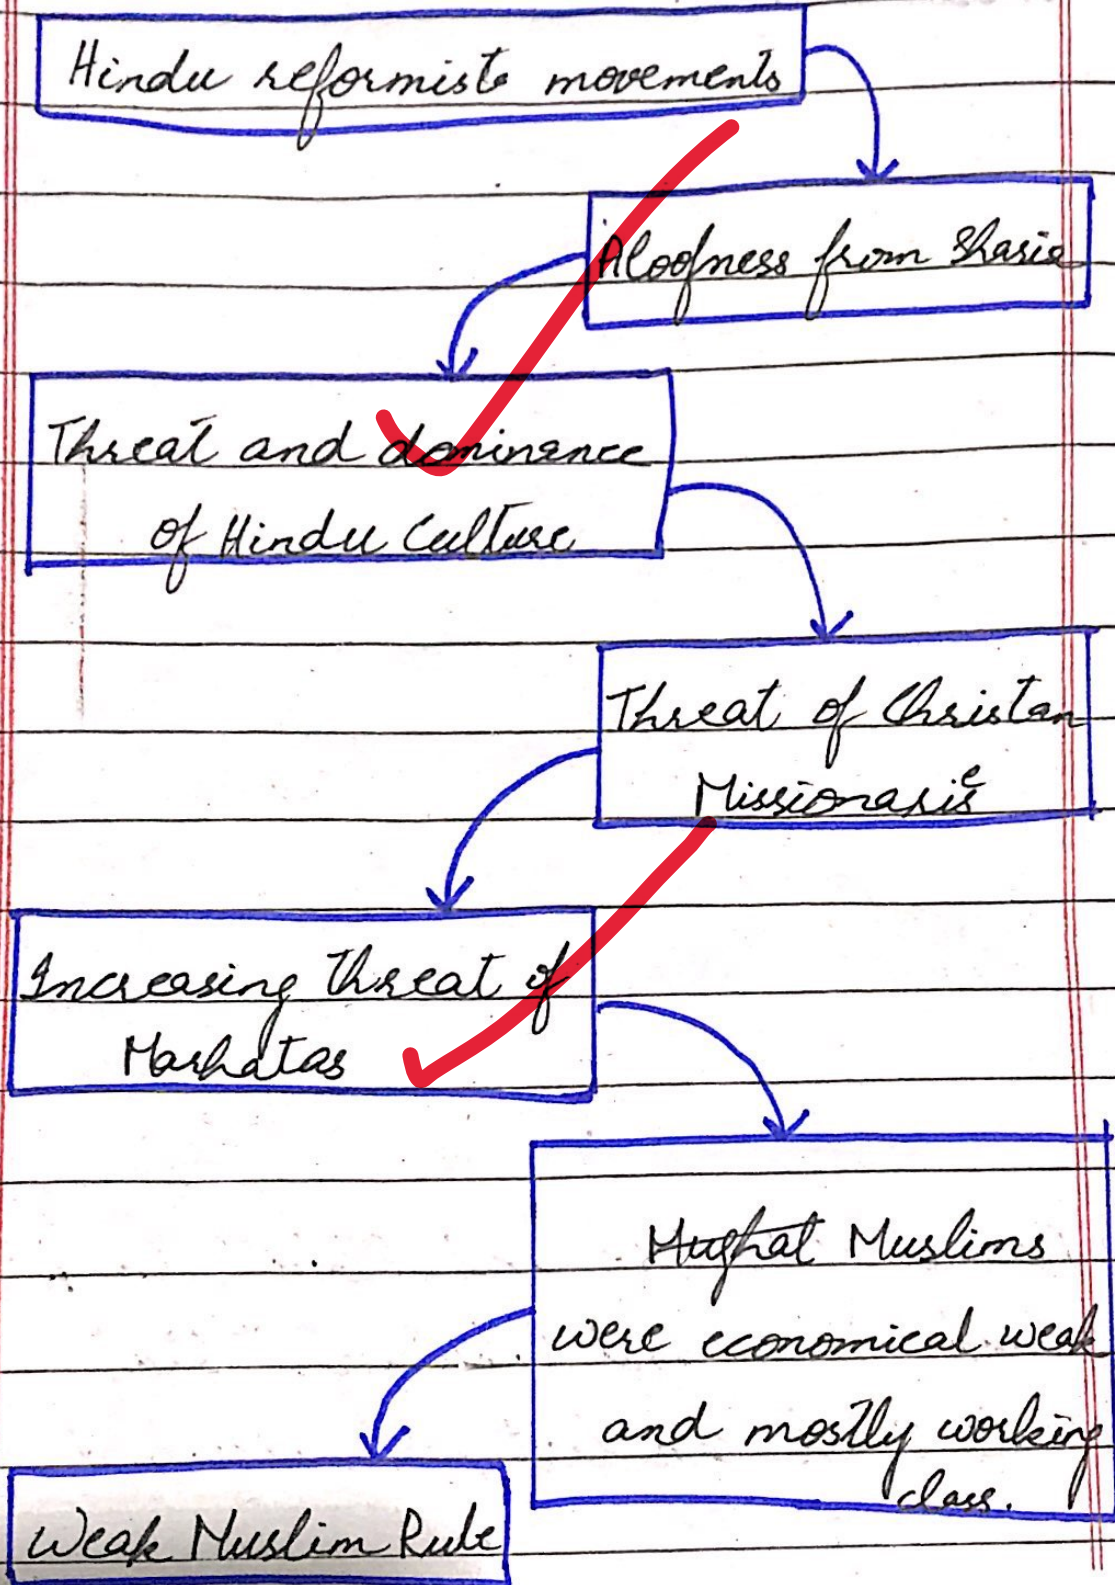 Hindu reformists movements
Aloofness from Sharia
Threat and dominance
of Hindu Culture
Threat of Christan
Missionaries
Increasing threat of
Marhatas
Mughal Muslims
were economical weak
and mostly working
class.
Weak Muslim Rule